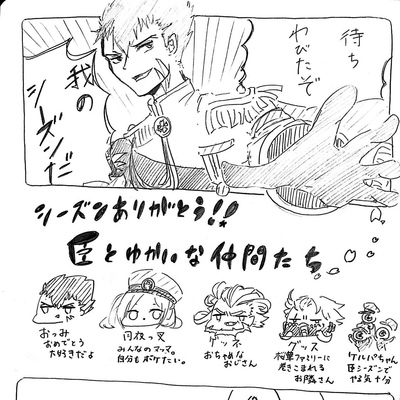 待ち
わびたぞ
我の
シーズンだ
シーズンありがとう!!
臣とゆかいな仲間たち
おっみ
おめでとう
大好きだよ
円夜っ叉
みんなのママ。
自分もボケたい。
グッネ
おちゃめな
おじさん
グッス
桜華ファミリーに
巻きこまれる
お隣さん
ケルパちゃん
臣シーズンで
やる気十分